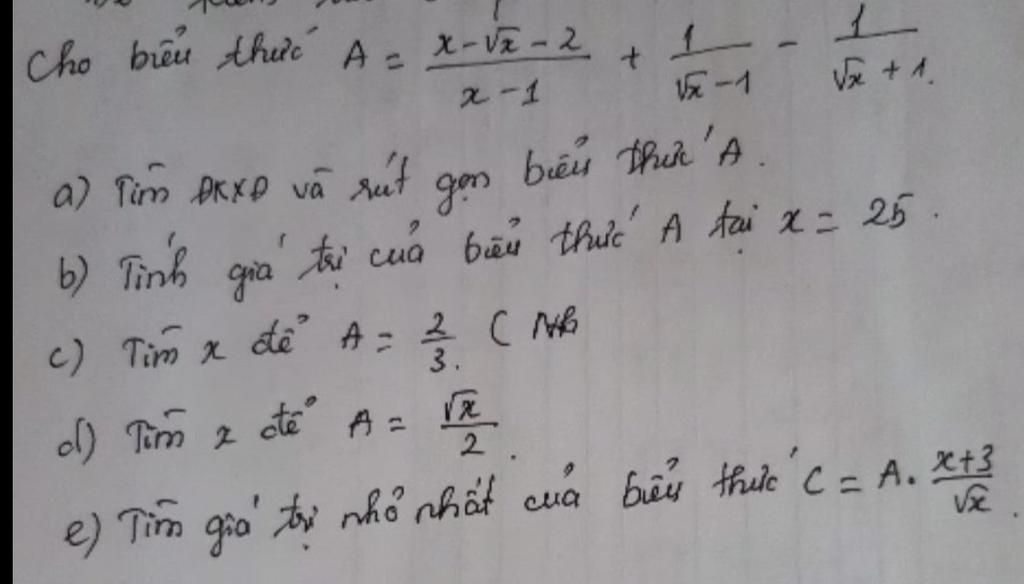 Cho biểu thức A = \frac{x-\sqrt{x}-2}{x-1} + \frac{1}{\sqrt{x}-1} - \frac{1}{\sqrt{x}+1}.
a) Tìm ĐKXĐ và rút gọn biểu thức A.
b) Tính giá trị của biểu thức A tại x = 25.
c) Tìm x để A = \frac{2}{3}. (
d) Tìm x để A = \frac{\sqrt{x}}{2}.
e) Tìm giá trị nhỏ nhất của biểu thức C = A. \frac{x+3}{\sqrt{x}}.